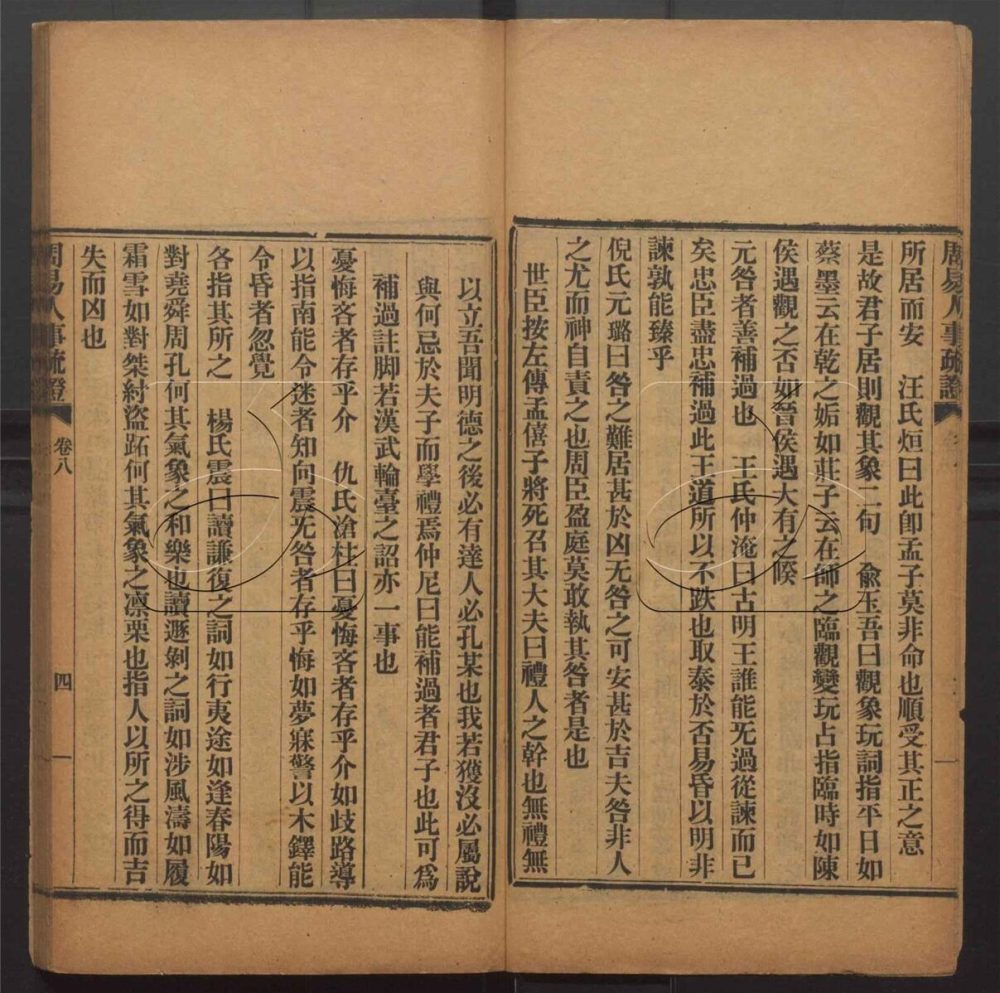 周易人事疏證
所居而安　汪氏烜曰此卽孟子莫非命也順受其正之意
是故君子居則觀其象二句　兪玉吾曰觀象玩詞指平日如
蔡墨云在乾之姤如莊子云在師之臨觀變玩占指臨時如陳
侯遇觀之否如晉侯遇大有之睽
元咎者善補過也　王氏仲淹曰古明王誰能旡過從諫而已
矣忠臣盡忠補過此王道所以不跌也取泰於否易昏以明非
諫孰能臻乎
倪氏元璐曰咎之難居甚於凶无咎之可安甚於吉夫咎非人
之尤而神自責之也周臣盈庭莫敢執其咎者是也
世臣按左傳孟僖子將死召其大夫曰禮人之幹也無禮無
以立吾聞明德之後必有達人必孔某也我若獲沒必屬說
與何忌於夫子而學禮焉仲尼曰能補過者君子也此可爲
補過註脚若漢武輪臺之詔亦一事也
憂悔吝者存乎介　仇氏滄柱曰憂悔吝者存乎介如歧路導
以指南能令迷者知向震无咎者存乎悔如夢寐警以木鐸能
令昏者忽覺
各指其所之　楊氏震曰讀謙復之詞如行夷途如逢春陽如
對堯舜周孔何其氣象之和樂也讀遯剝之詞如涉風濤如履
霜雪如對桀紂盜跖何其氣象之凛栗也指人以所之得而吉
失而凶也
周易人事疏證　卷八　四